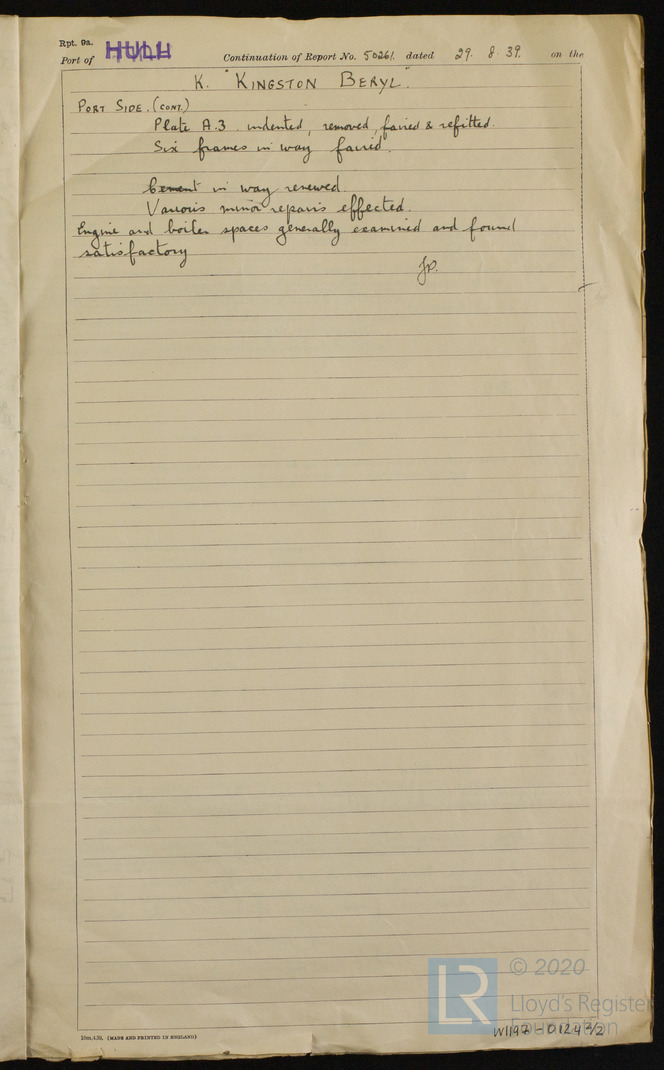 Rpt. 9a.
Port of HULL Continuation of Report No. 50261 dated 29. 8. 39. on the
K. "KINGSTON BERYL".
PORT SIDE. (CONT.)
Plate A.3. indented, removed, faired & refitted.
Six frames in way faired.
Cement in way renewed.
Various minor repairs effected.
Engine and boiler spaces generally examined and found
satisfactory
© 2020
LR Lloyd's Register
Foundation
W1197-0124 2/2
10m,4.39. (MADE AND PRINTED IN ENGLAND)